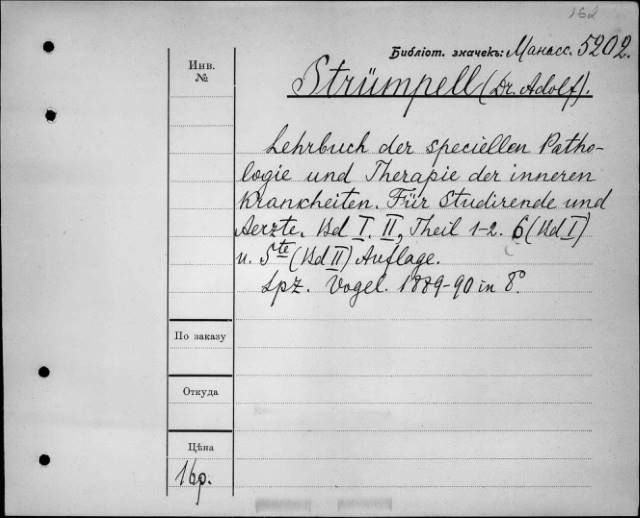 162
Библіот. значекъ: Манасс. 5202.
Инв.
№
Strümpell (Dr. Adolf).
Lehrbuch der speciellen Patho-
logie und Therapie der inneren
Krankheiten. Für Studirende und
Aerzte. Bd I. II, Theil 1-2. 6 (Bd I)
u. 5te (Bd II) Auflage.
Lpz. Vogel. 1889-90 in 8°.
По заказу
Откуда
Цѣна
16р.